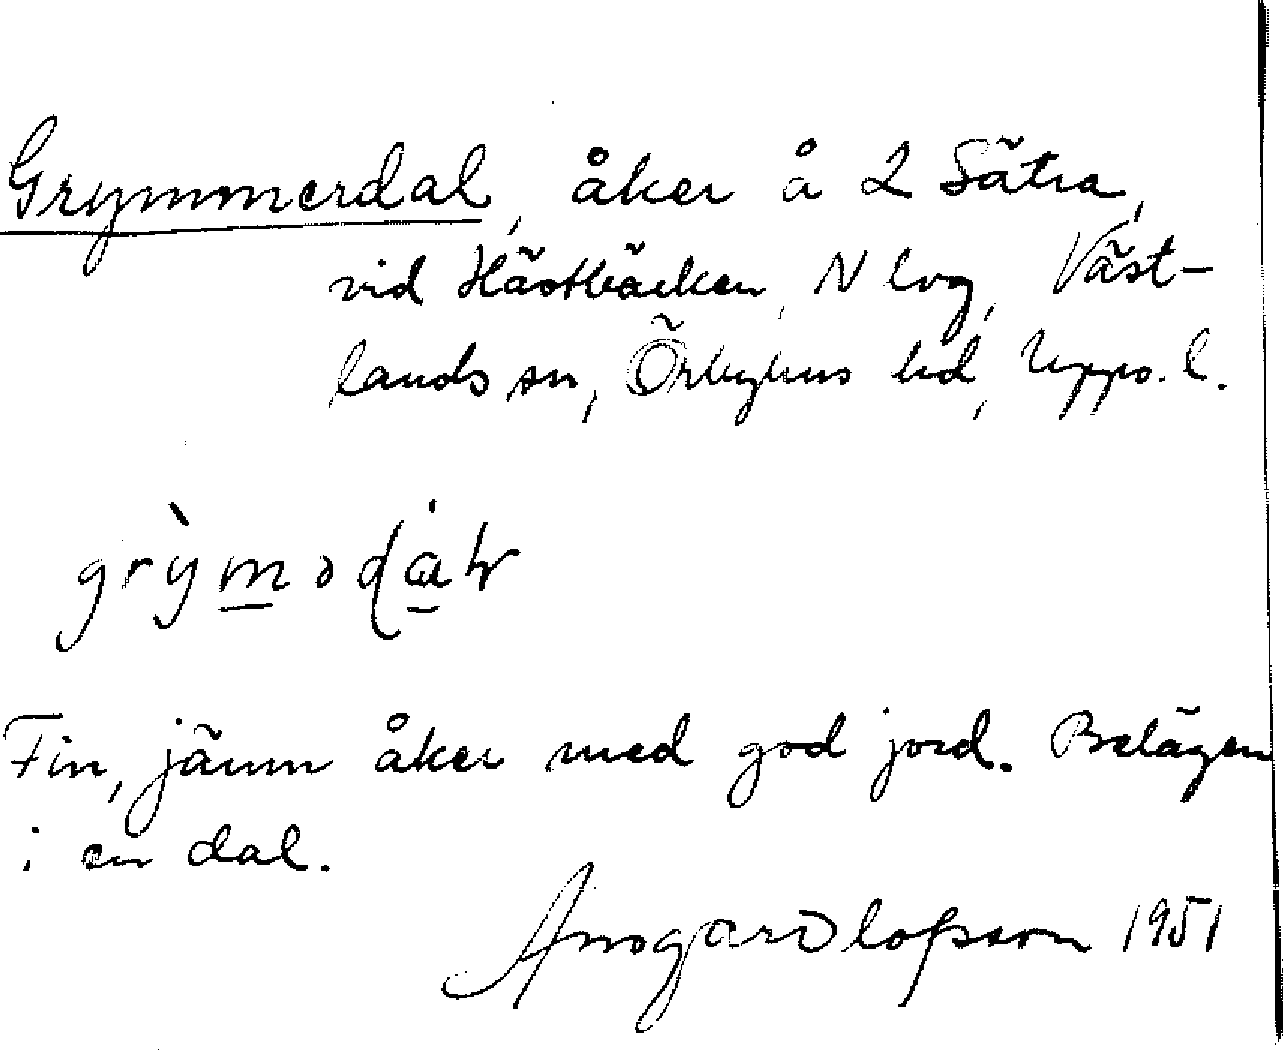 Grymmerdal, åker å 2 Sätra,
vid Hästbäcken, N lvg, Väst-
lands sn, Örbyhus hd, Upps. l.
Fin, jämn åker med god jord. Belägen
i en dal.
Ansgar Olofsson 1951